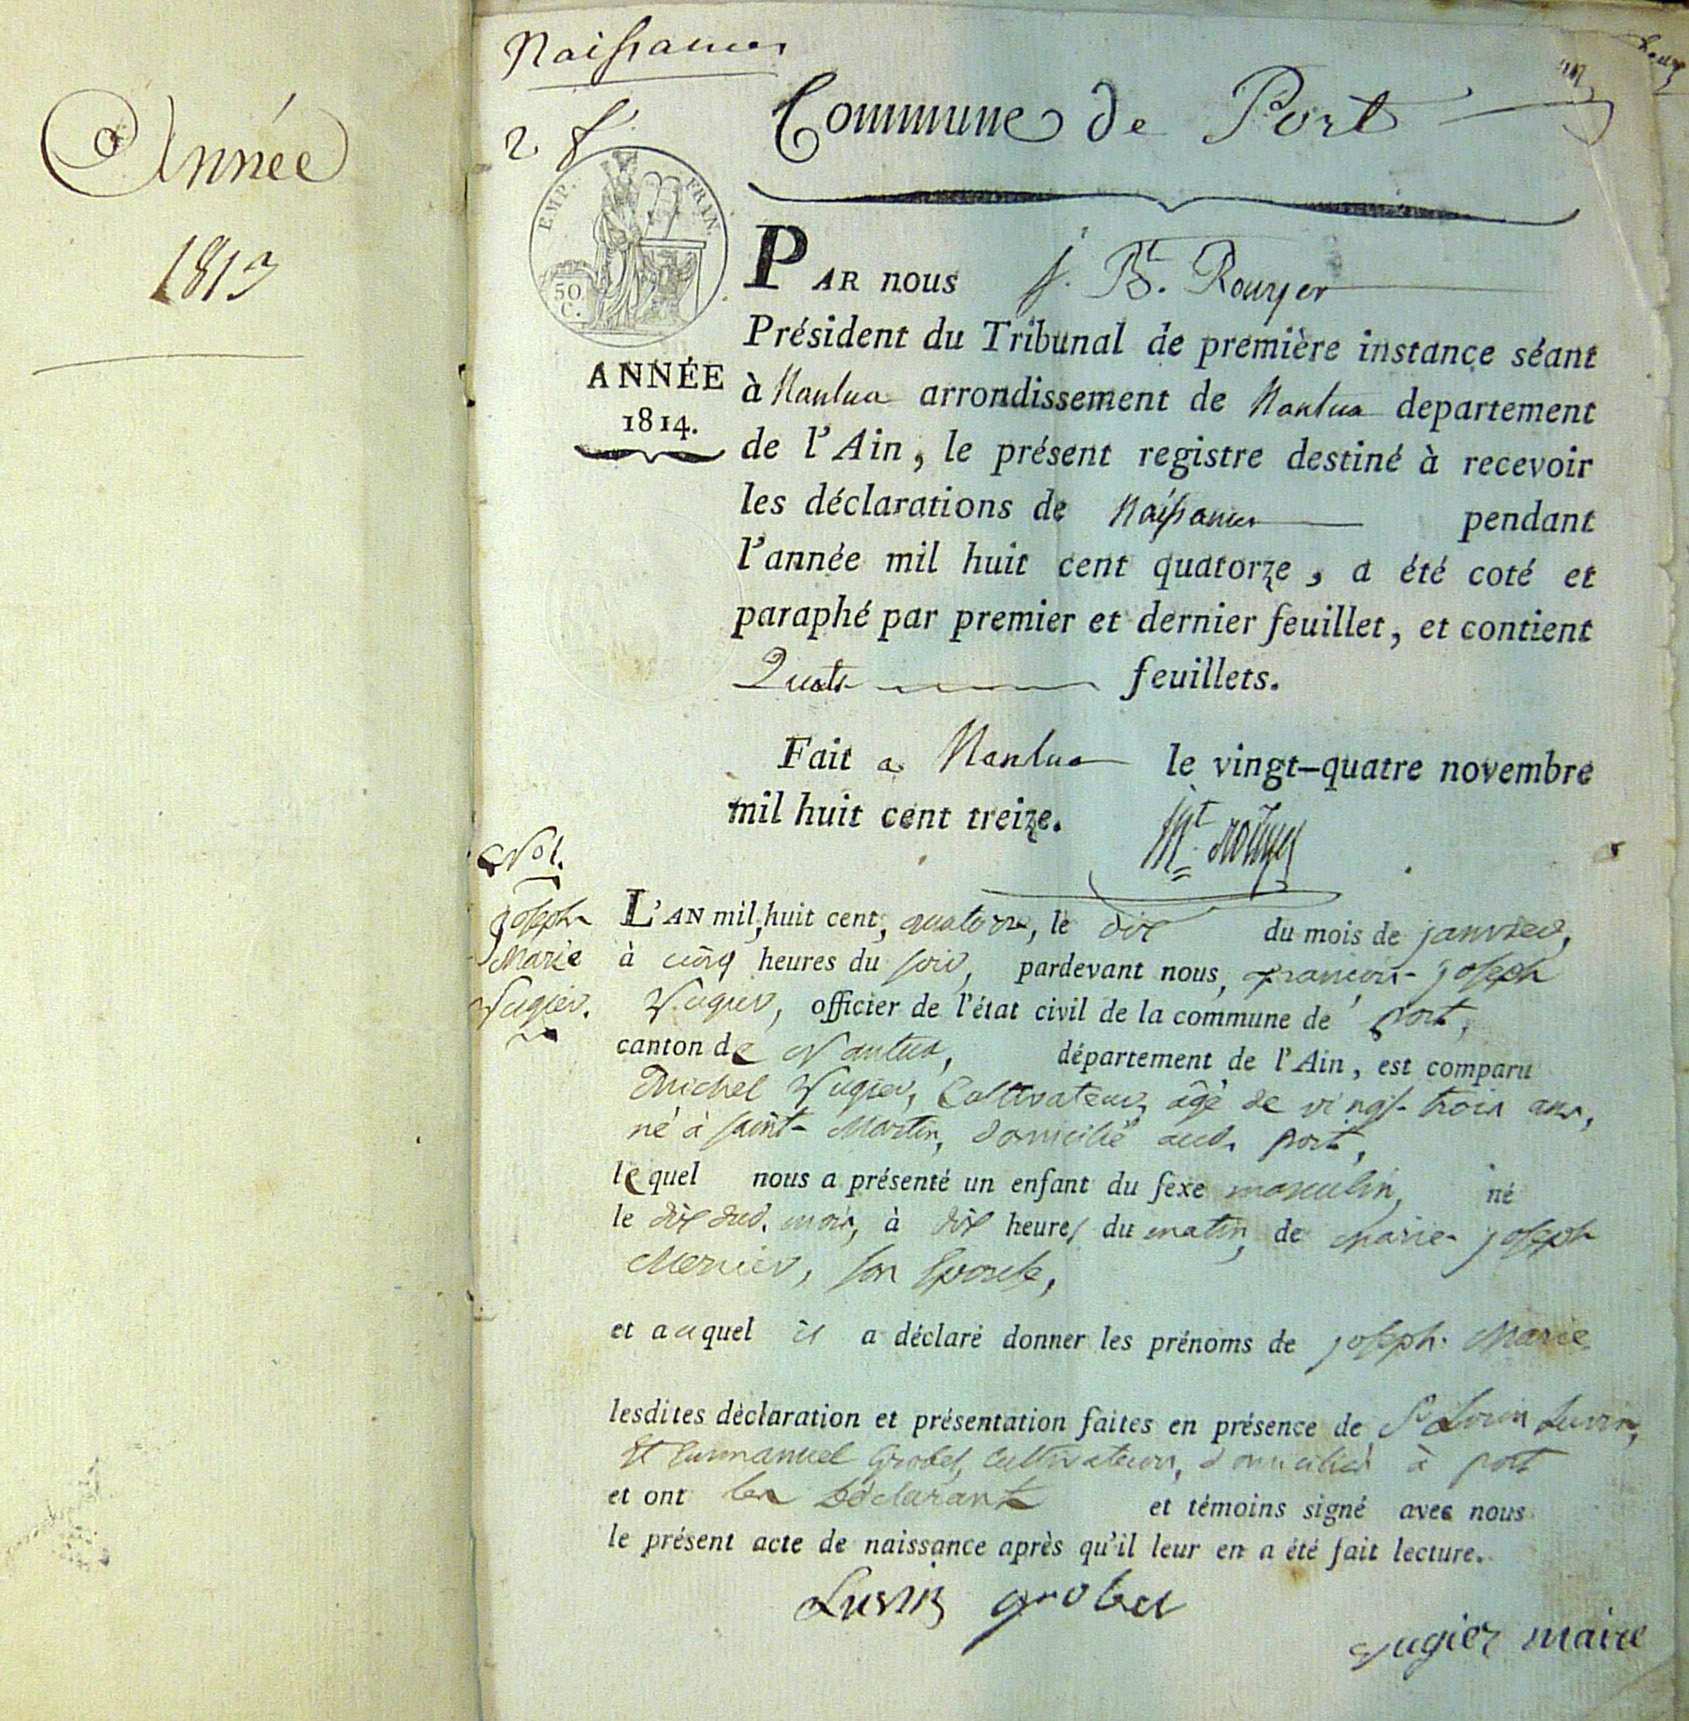 Année
1813
Naissances
2 f.
Commune de Port
EMP. FRAN.
50 C.
ANNÉE
1814.
PAR nous J. Bt. Rouyer
Président du Tribunal de première instance séant
à Nantua arrondissement de Nantua departement
de l'Ain, le présent registre destiné à recevoir
les déclarations de Naissances pendant
l'année mil huit cent quatorze, a été coté et
paraphé par premier et dernier feuillet, et contient
Quatre feuillets.
Fait a Nantua le vingt-quatre novembre
mil huit cent treize.
No 1.
Joseph
Marie
Vugier.
L'AN mil, huit cent, quatorze, le dix du mois de janvier,
à cinq heures du soir, pardevant nous, françois joseph
Vugier, officier de l'état civil de la commune de port,
canton de Nantua, département de l'Ain, est comparu
Michel Vugier, Cultivateur, âgé de vingt-trois ans,
né à saint Martin, domicilié aud. port,
lequel nous a présenté un enfant du sexe masculin, né
le dix dud. mois, à dix heures du matin, de marie joseph
Mercier, son Epouse,
et auquel il a déclaré donner les prénoms de joseph Marie
lesdites déclaration et présentation faites en présence de Louis Luvin,
Et Emmanuel Grobel, Cultivateurs, domiciliés à port
et ont les Déclarant et témoins signé avec nous
le présent acte de naissance après qu'il leur en a été fait lecture.
Luvin grobel
vugier maire